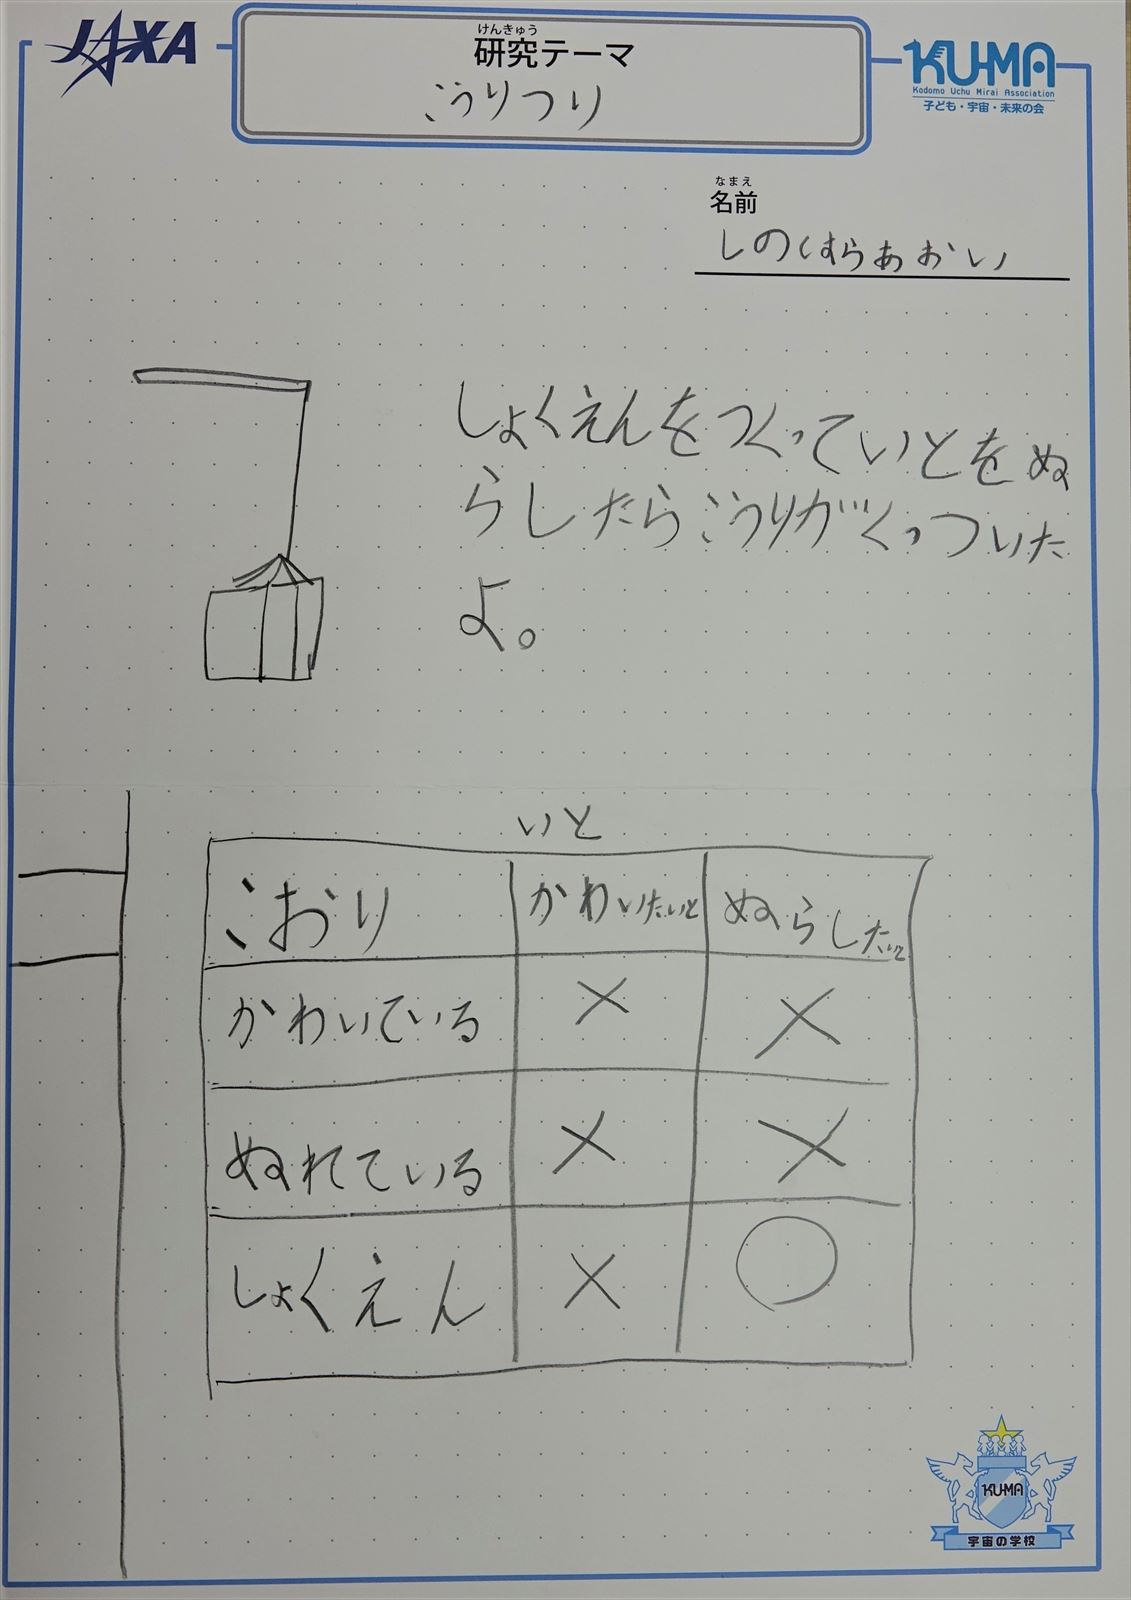 JAXA
けんきゅう
研究テーマ
こうりつり
KU-MA
Kodomo Uchu Mirai Association
子ども・宇宙・未来の会
なまえ
名前
しのはらあおい
しょくえんをつくっていとをぬ
らしたらこうりがくっついた
よ。
いと
こおり かわいたいと ぬらしたいと
かわいている × ×
ぬれている × ×
しょくえん × ○
KU-MA
宇宙の学校